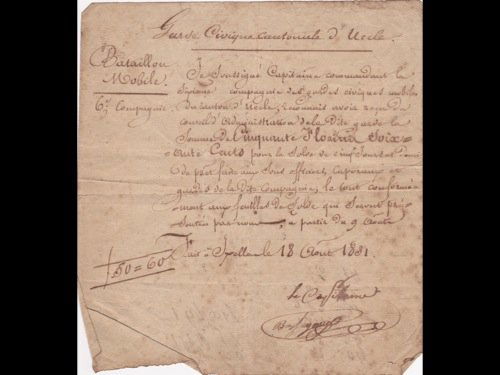 Garde Civique cantonale d'Uccle.
Bataillon
Mobile.
6e Compagnie
Je Soussigné Capitaine commandant la
Sixième compagnie des gardes civiques mobiles
du canton d'Uccle, reconnais avoir recu du
conseil d'Administration de la Dite garde la
Somme de Cinquante Florins Soix-
ante Cents pour le Solde de cinq Jours
de pret faite aux Sous officiers, caporaux et
gardes de la Dite Compagnie, le tout conformé-
ment aux feuilles de Solde qui Seront
par nous, a partir du 9 Aoute
f. 50 = 60
Fait a Ixelles le 18 Aout 1831.
Le Capitaine